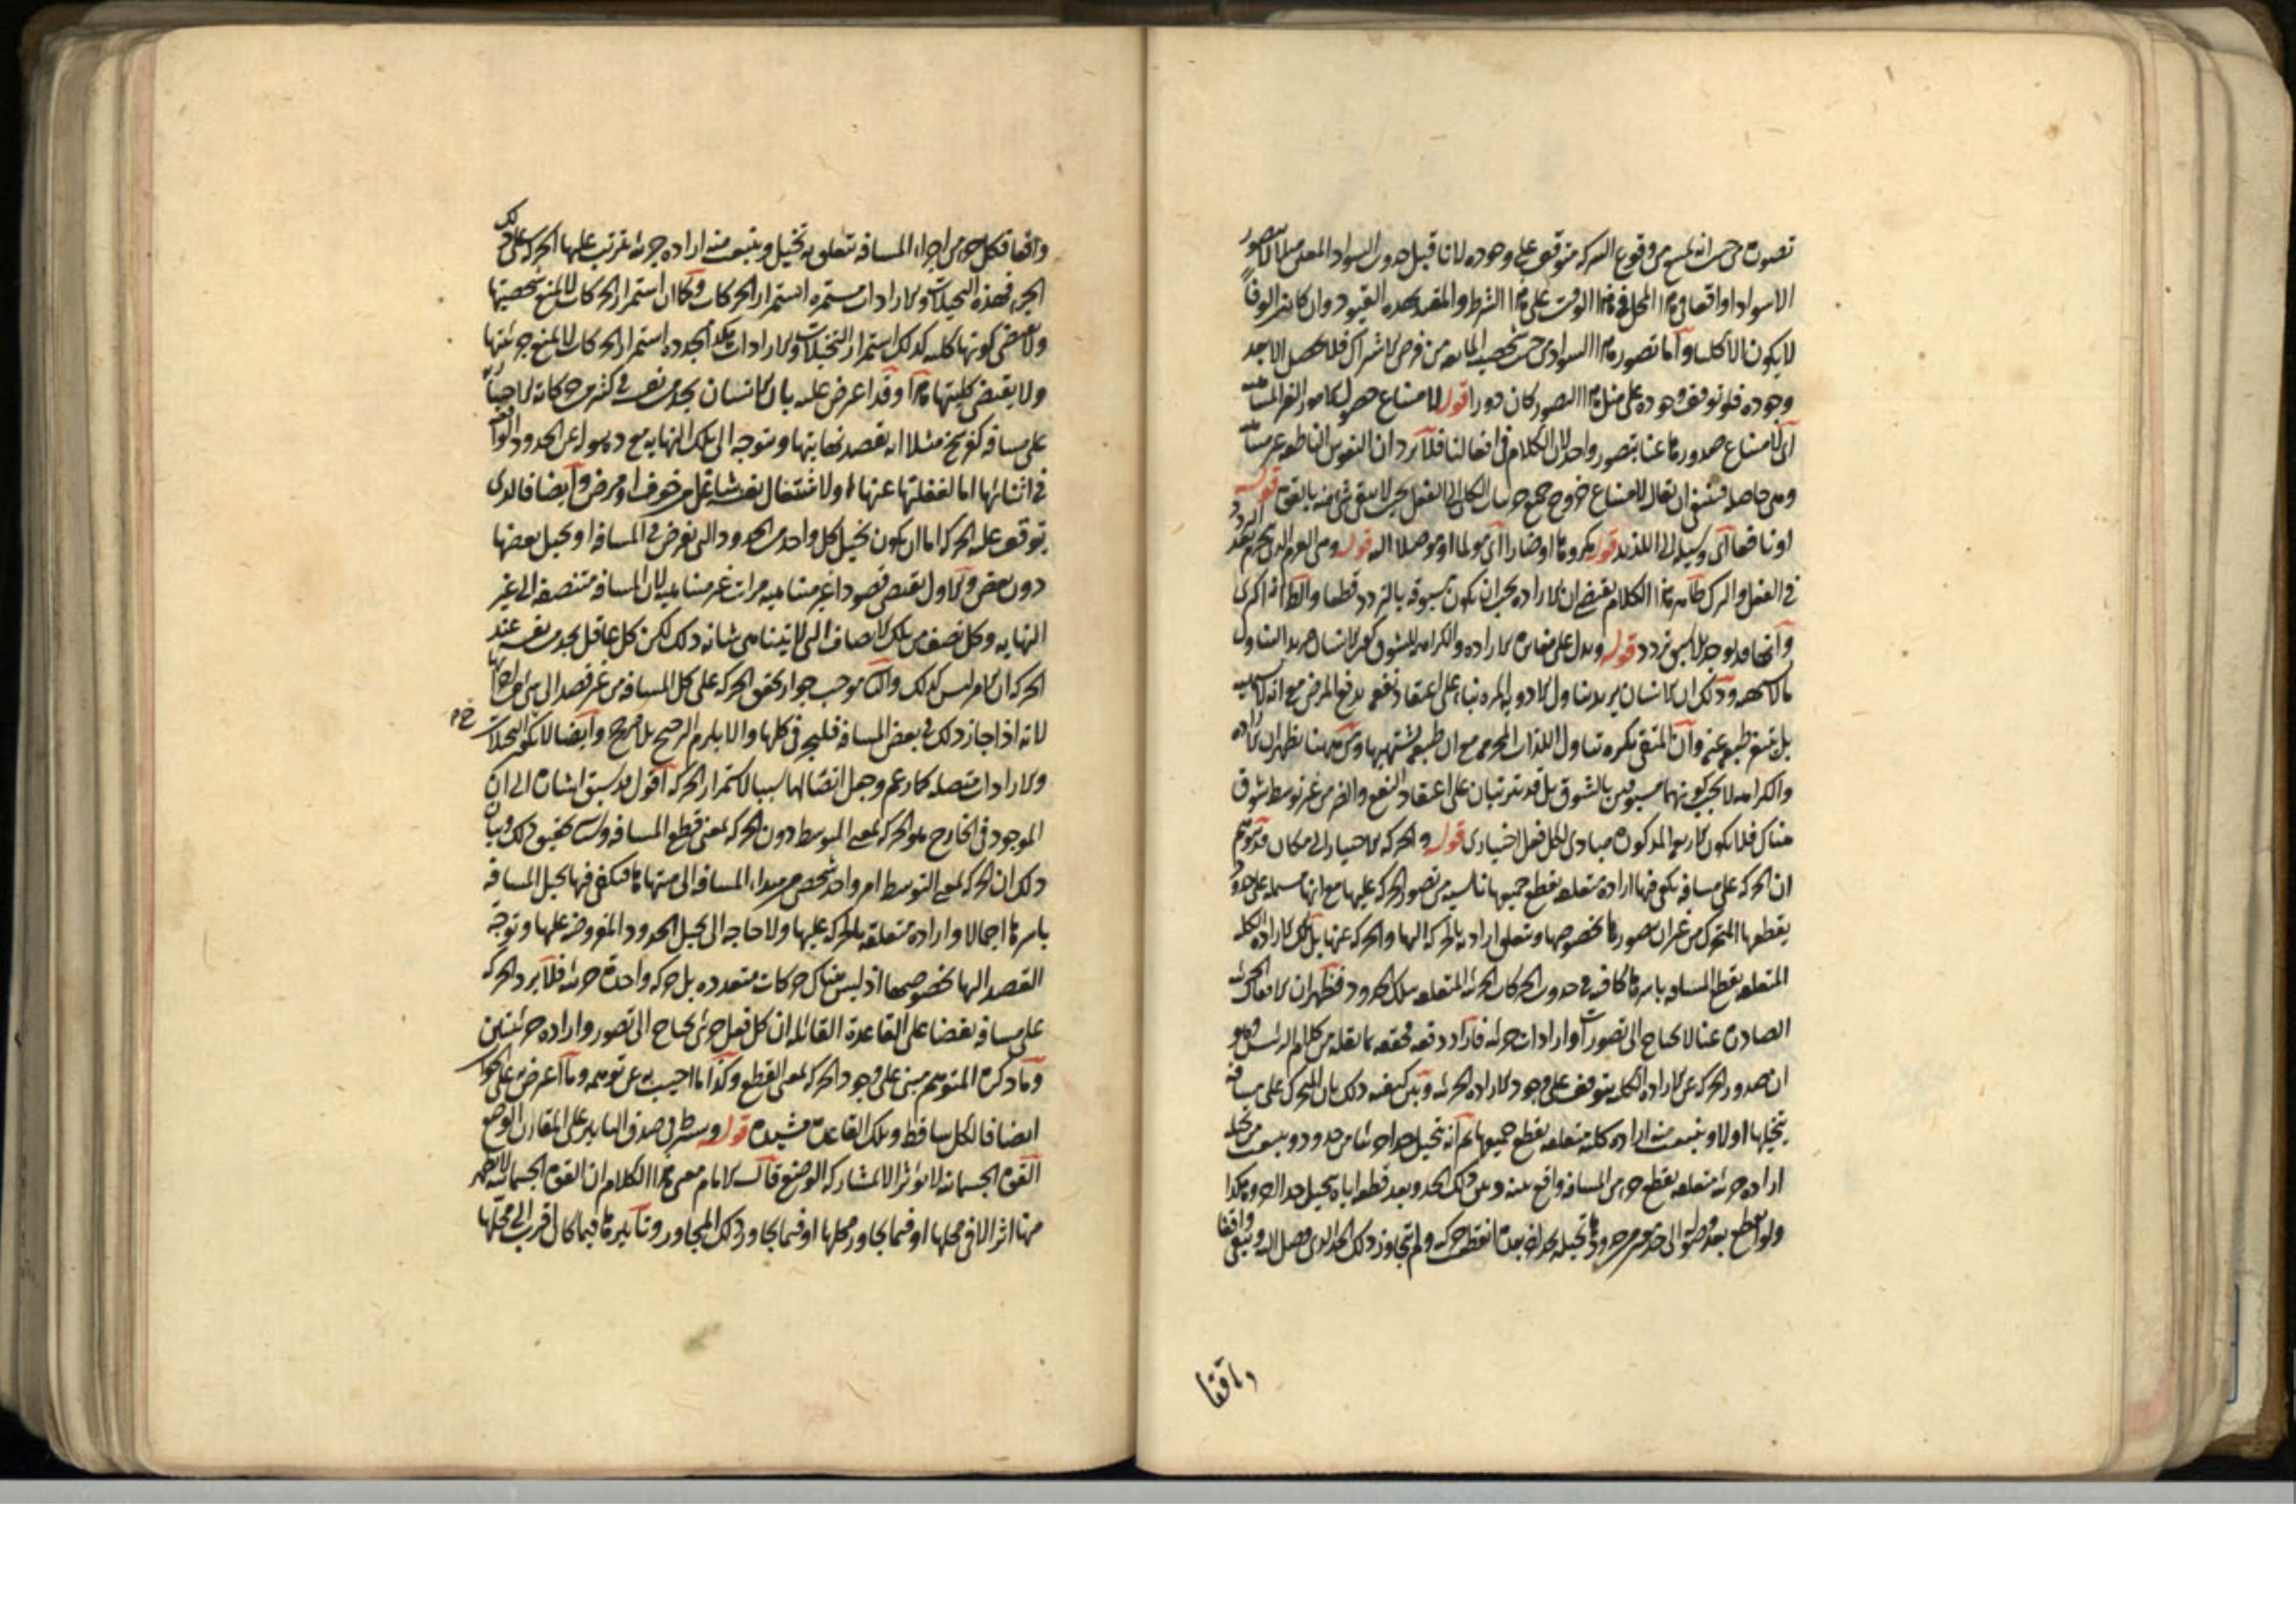 تصوره من حيث انه يمنع من وقوع الشركة متوقف على وجوده لانا قبل حدوث السواد المعين مثلا لا نتصور
الا سوادا واقعا في هذا المحل في هذا الوقت على هذا الشرط والمقيد بهذه القيود وان كانت الوفا
لا يكون الا كليا واما تصور هذا السواد من حيث شخصيته المانعة من فرض الاشتراك فلا يحصل الا بعد
وجوده فلو توقف وجوده على مثل هذا التصور كان دورا قوله لامتناع حصول الامور الغير المتناهية
اى لامتناع صدورها عنا بتصور واحد لان الكلام في افعالنا فلا يرد ان النفوس الناطقة غير متناهية
حاصلة فينبغي ان يقال لامتناع خروج جميع جزئيات الكلى الى الفعل بحيث لا يبقى شئ منه بالقوة قوله
او نافعا اى وسيلة الى اللذيذ قوله مكروها او ضارا اى مولما او موصلا اليه قوله وهي العزم الذي يجزم بعد التردد
في الفعل والترك ظاهر هذا الكلام يقتضي ان الارادة يجب ان تكون مسبوقة بالتردد قطعا والظ انه اكثرى
وانها قد توجد بلا سبق تردد قوله ويدل على مغايرة الارادة والكراهة للشوق كون الانسان مريدا لتناول
ما لا يشتهيه وذلك ان الانسان يريد تناول الادوية المرة بناء على اعتقاد نفعه بدفع المرض مع انه لا يشتهيه
بل يتنفر طبعه عنه وان المتقي يكره تناول اللذات المحرمة مع ان طبعه يشتهيها ومن ههنا يظهر ان الارادة
والكراهة لا يجب كونهما مسبوقين بالشوق بل قد تترتبان على اعتقاد النفع والضر من غير توسط شوق
هناك فلا يكون الاربعة المذكورة مبادى لكل فعل اختيارى قوله والحركة الاختيارية الى مكان قد يتوهم
ان الحركة على مسافة يكفي فيها ارادة متعلقة بقطع جميعها ناشية من تصور الحركة عليها مع انها مشتملة على حدود
يقطعها المتحرك من غير ان يتصورها بخصوصها ويتعلق ارادته بالحركة اليها والحركة عنها بل تلك الارادة الكلية
المتعلقة بقطع المسافة باسرها كافية في حدوث الحركات الجزئية المتعلقة بتلك الحدود فظهر ان الافعال الجزئية
الصادرة عنا لا تحتاج الى تصورات وارادات جزئية فاراد دفعه بما نقله من كلام الرئيس وهو
ان صدور الحركة عن الارادة الكلية يتوقف على وجود الارادة الجزئية وبين كيفية ذلك بان المتحرك على مسافة
يتخيلها اولا وينبعث منه ارادة كلية متعلقة بقطع جميعها ثم انه يتخيل حدا جزئيا من حدود وينبعث من تخيله
ارادة جزئية متعلقة بقطع جزء من المسافة واقع بينه وبين ذلك الحد وبعد قطعه اياه يتخيل حدا اخر وهكذا
ولو انقطع بعد وصوله الى حد من حدودها تخيله لحد اخر بعده انقطع حركته ولم تتجاوز ذلك الحد الذي وصل اليه وبقي واقفا
واقفا
واقفا فكل جزء من اجزاء المسافة يتعلق به تخيل وينبعث منه ارادة جزئية يترتب عليها الحركة على ذلك
الجزء فهذه التخيلات والارادات مستمرة استمرار الحركات وكما ان استمرار الحركات لا يمنع شخصيتها
ولا يقتضي كونها كلية كذلك استمرار التخيلات والارادات استمرار الحركات لا يمنع جزئيتها
ولا يقتضي كليتها هذا وقد اعترض عليه بان الانسان يجد من نفسه في كثير من حركاته الاختيارية
على مسافة كفرسخ مثلا انه يقصد نهايتها ويتوجه الى تلك النهاية مع ذهوله عن الحدود الواقعة
في اثنائها اما لغفلتها عنها او لاشتغال نفسه بشاغل من خوف او مرض وايضا فالذى
يتوقف عليه الحركة اما ان يكون تخيل كل واحد من الحدود التي تفرض في المسافة او تخيل بعضها
دون بعض والاول يقتضي قصودا غير متناهية مرات غير متناهية لان المسافة متنصفة الى غير
النهاية وكل نصف من تلك الانصاف التي لا تتناهى شانه ذلك لكن كل عاقل يجد من نفسه عند
الحركة ان الامر ليس كذلك والثاني يوجب جواز تحقق الحركة على كل المسافة من غير قصد الى شئ من اجزائها
لانه اذا جاز ذلك في بعض المسافة فليجز في كلها والا يلزم الترجيح بلا مرجح وايضا لا يكون التخيلات
والارادات متصلة كما زعم وجعل اتصالها سببا لاستمرار الحركة اقول قد سبق اشارة الى ان
الموجود في الخارج هو الحركة بمعنى التوسط دون الحركة بمعنى قطع المسافة وسياتي تحقيق ذلك وبيان
ذلك ان الحركة بمعنى التوسط امر واحد شخصي من مبداء المسافة الى منتهاها فيكفي فيها تخيل المسافة
باسرها اجمالا وارادة متعلقة بالحركة عليها ولا حاجة الى تخيل الحدود المفروضة عليها وتوجه
القصد اليها بخصوصها اذ ليس هناك حركات متعددة بل حركة واحدة جزئية فلا يرد الحركة
على مسافة نقضا على القاعدة القائلة ان كل فعل جزئي يحتاج الى تصور وارادة جزئيتين
وما ذكره المتوهم مبنى على وجود الحركة بمعنى القطع وكذا ما اجيب به عن توهمه وما اعترض به على الجواب
ايضا فالكل ساقط وتلك القاعدة مشيدة قوله ويشترط في صدق التاثير على المقارن الوضع
القوة الجسمانية لا تؤثر الا بمشاركة الوضع قال الامام معنى هذا الكلام ان القوة الجسمانية لا يظهر
منها اثر الا في محلها او فيما يجاور محلها او فيما يجاور ذلك المجاور وتاثيرها فيما كان اقرب الى محلها